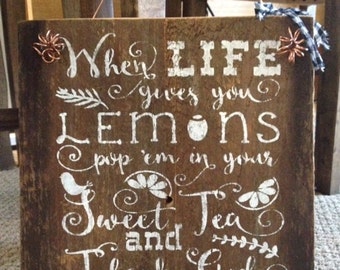 When LIFE
gives you
LEMONS
pop 'em in your
Sweet Tea
and
Thank God